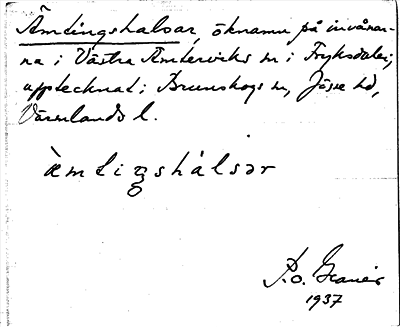 Ämtingshalsar, öknamn på invånar-
na i Västra Ämterviks sn i Fryksdalen;
upptecknat i Brunskogs sn, Jösse hd,
Värmlands l.
ämtiŋshálsər
P.o. Granér
1937